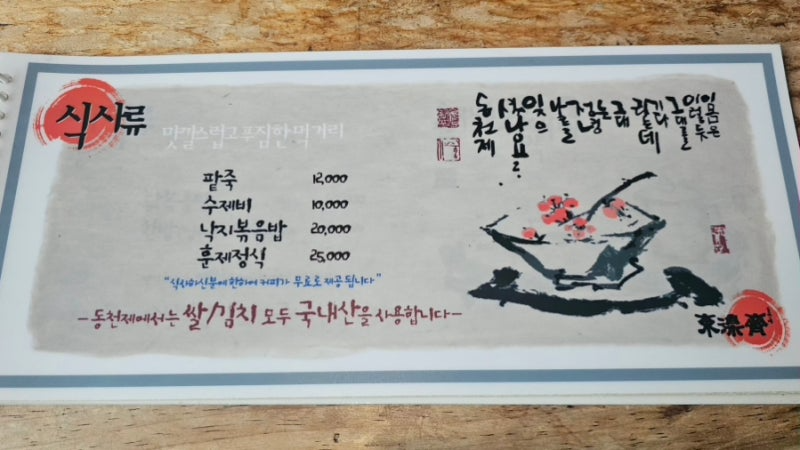 식사류
맛깔스럽고 푸짐한 먹거리
팥죽 12,000
수제비 10,000
낙지볶음밥 20,000
훈제정식 25,000
"식사하신분에 한하여 커피가 무료로 제공됩니다"
-동천제에서는 쌀/김치 모두 국내산을 사용합니다-
임몸은
이렇듯
그대를
기다
그대
나를
잊으
셨나요?
동천제